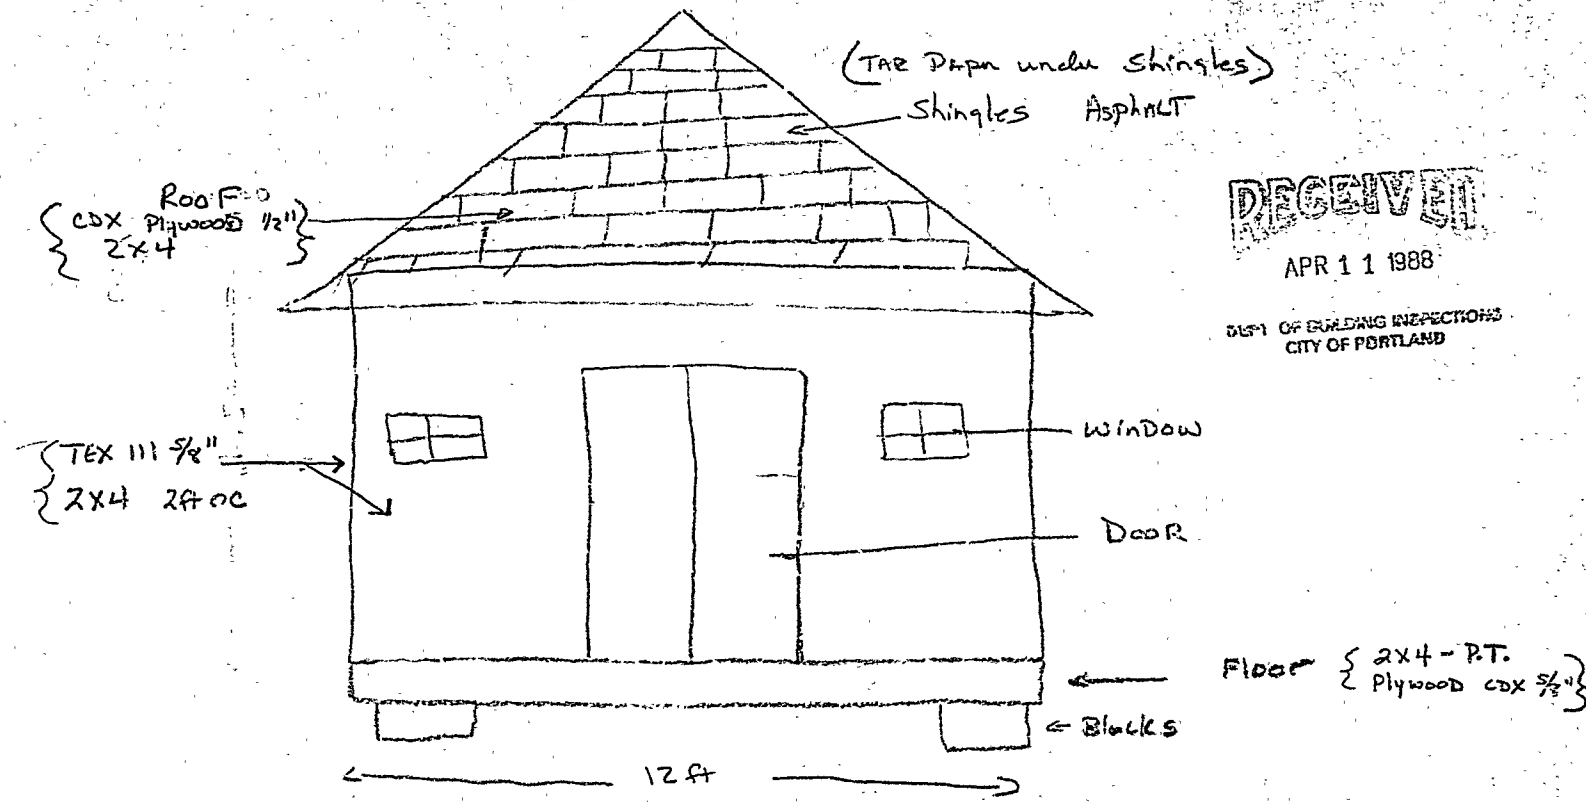 (TAR Papr under Shingles)
Shingles Asphalt
Roof
CDX Plywood 1/2"
2x4
RECEIVED
APR 11 1988
DEPT OF BUILDING INSPECTIONS
CITY OF PORTLAND
TEX 111 5/8"
2x4 2ft oc
Window
Door
Floor
2x4 - P.T.
Plywood CDX 5/8"
Blocks
12 ft